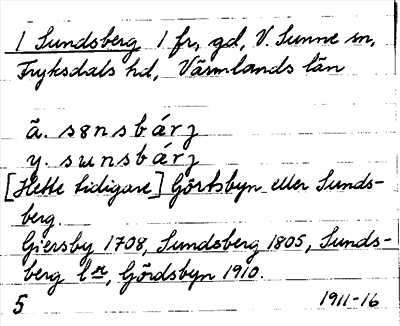 1 Sundsberg 1 fr, gd, V. Sunne sn,
Fryksdals hd, Värmlands län
ä. sønsbárj
y. sunsbárj
[Hette tidigare] Gördsbyn eller Sunds-
berg
Giersby 1708, Sundsberg 1805, Sunds-
berg l r, Gördsbyn 1910.
5 1911-16